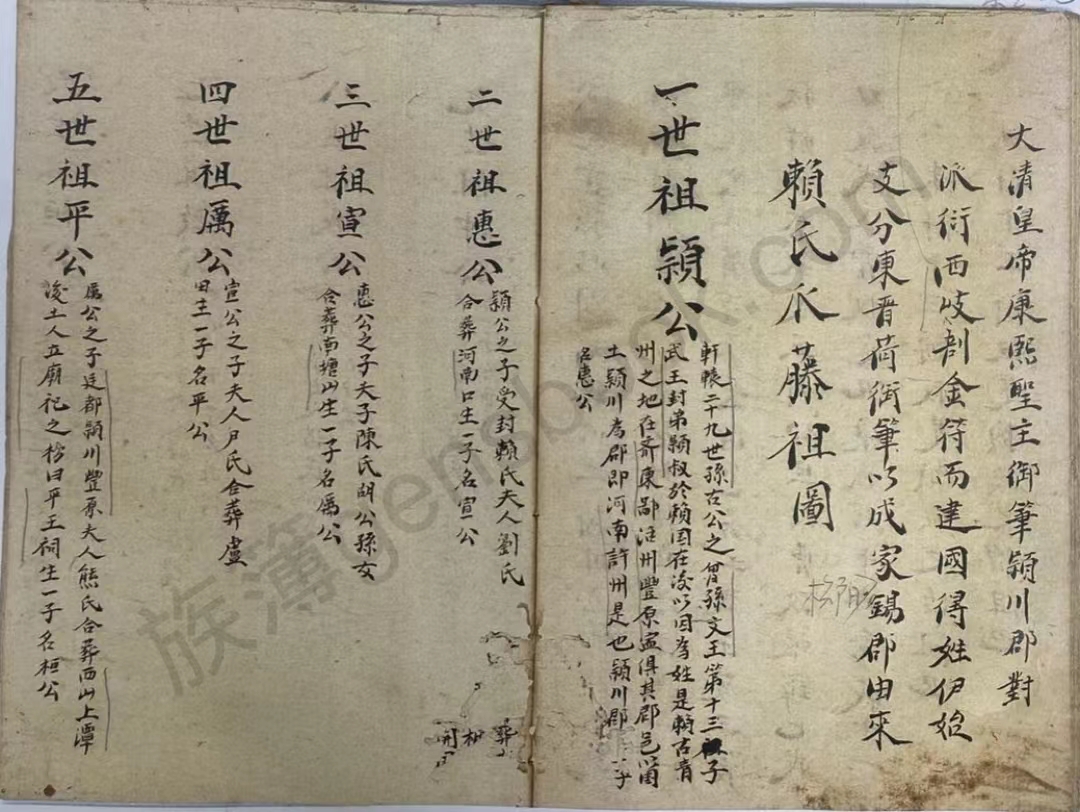 大清皇帝康熙聖主御筆頴川郡對
派衍西岐剖金符而建國得姓伊始
支分東晋荷御筆以成家錫郡由來
賴氏爪藤祖圖
一世祖頴公
軒轅二十九世孫古公之曾孫文王第十三子
武王封弟頴叔於賴国在後以国為姓是賴古青
州之地在齊東鄙沿州豐原寔得其郡邑
土頴川為郡即河南許州是也頴川郡一子
名惠公
二世祖惠公
頴公之子受封賴氏夫人劉氏
合葬河南口生一子名宣公
三世祖宣公
惠公之子夫子陳氏胡公孫女
合葬南塘山生一子名厲公
四世祖厲公
宣公之子夫人尸氏合葬盧
田生一子名平公
五世祖平公
厲公之子廷都頴川豐原夫人熊氏合葬西山上潭
後土人立廟祀之榜曰平王祠生一子名桓公
族簿genebook.com